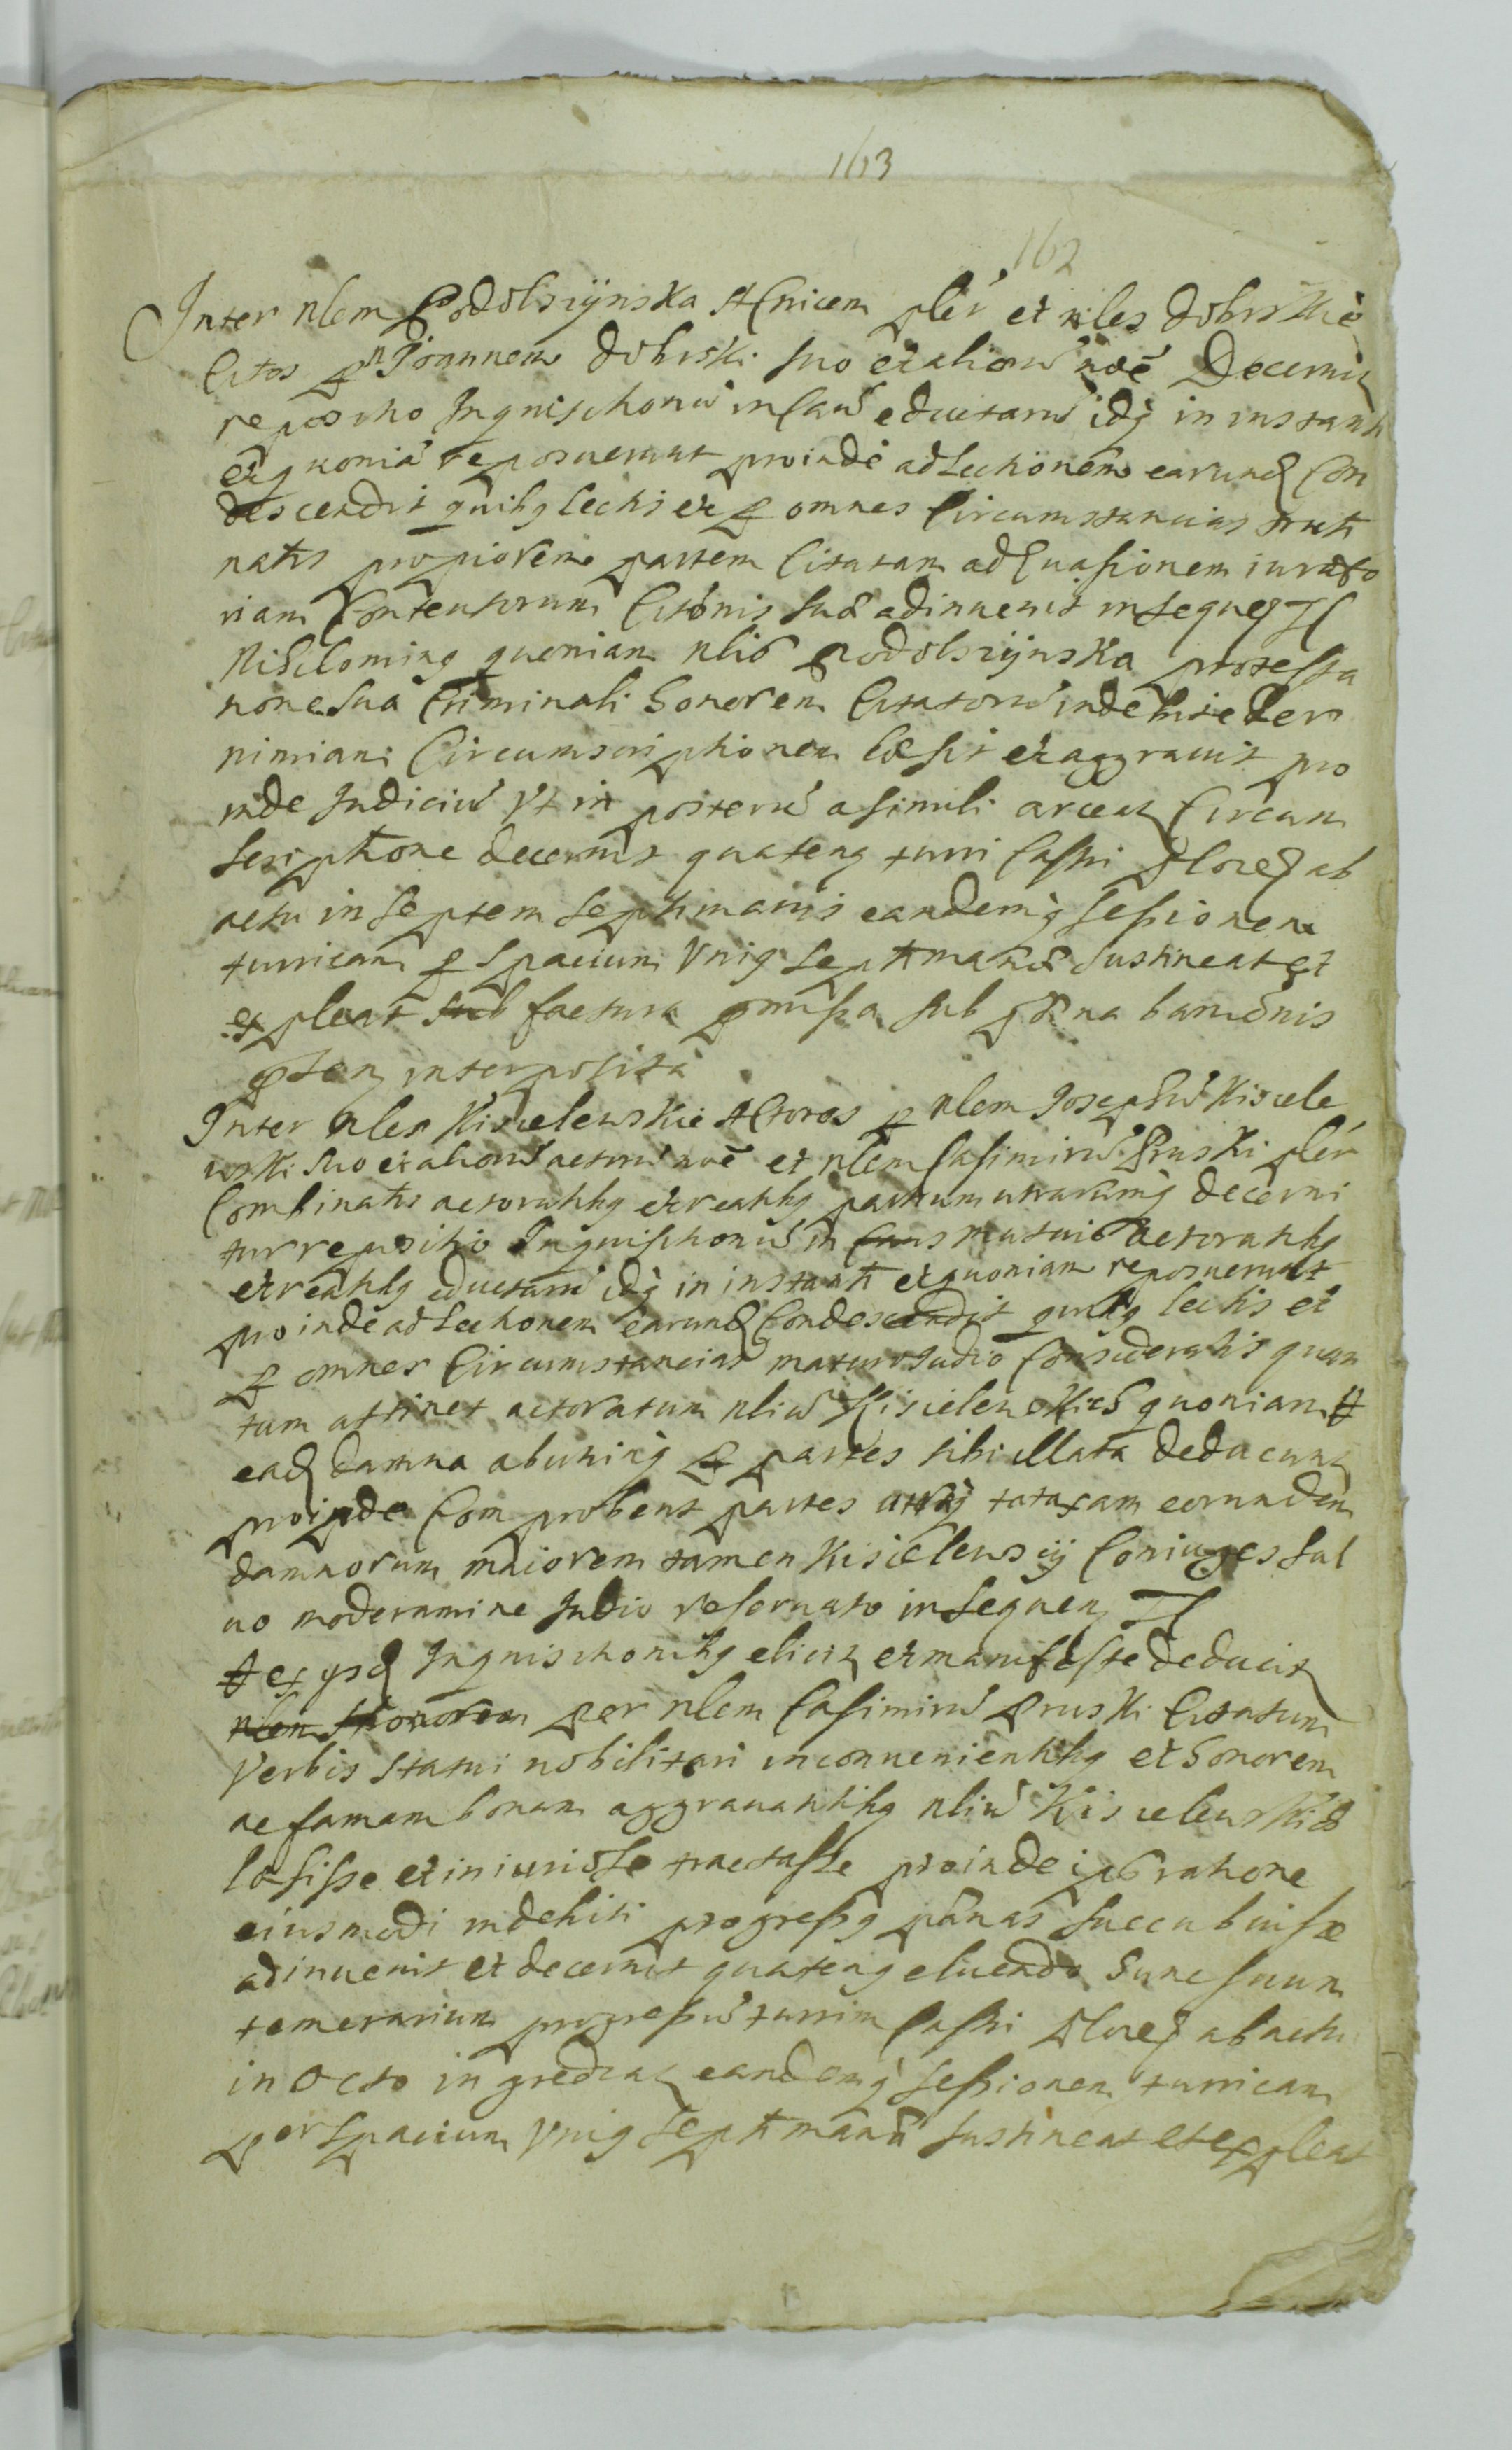 163
162
Inter nlem Podolszÿnska Actricem pler et nles Dobrskie
Citos p n Joannem Dobrski suo et aliorū noē Decernitz
repositio Inquisitionū in causa eductarū idq in instanti
et quoniā reposuerunt proinde ad lectionem earundz Con
descendit quibq lectis et p omnes Circumstancias truti
natis propiorem partem Citatam ad Euasionem iurato
riam Contentorum Citōnis suæ adinuenit in sequez Jl
Nihilominq quoniam nlis Podolszÿnska protesta
tione sua Criminali honorem Citatorū indebite per
nimiam Circumscriptionem læsit et aggrauit pro
inde Judiciū Vt in posterū a simili arceatz Circum
scriptione decernit quatenq turri Castri Plocez ab
actu in septem septimanis eandemq sessionem
turricam p spacium Vniq septimanæ sustineat et
expleat factura pmissa sub pœna banōnis
pstenz interposita
Inter nles Kisielewskie Actores p nlem Josephū Kisiele
wski suo et aliorū actorū noē et nlem Casimirū Pruski pler
Combinatis actoratibq et reatibq partium utrarumq decerni
tur repositio Inquisitionū in mutuis actoratibq
et reatibq eductarū idq in instanti et quoniam reposuerunt
proinde ad Lectionem earundz Condescendit quibq lectis et
p omnes Circumstancias mature Judio Consideratis quan
tum attinet actoratum nliū Kisielewskich quoniam #
eadz damna ab utraq p partes sibi illata deducuntz
proinde Comprobent partes utræq taxam eorundem
damnorum maiorem tamen Kisielewscij Coniuges sal
uo moderamine Judio reseruato in sequenz Jl
# ex ijsdz Inquisitionibq elicitz et manifeste deducitz
per nlem Casimirū Pruski Citatum
Verbis statui nobilitari inconuenientibq et honorem
ac famam bonam aggrauantibq nliū Kisielewskich
læsisse et iniuriose tractasse proinde ips ratione
eiusmodi indebiti progressq pœnas succubuisse
adinuenit et decernit quatenq eluendo hunc suum
temerarium progressū turrim Castri Plocez ab actu
in octo ingrediatz eandemq sessionem turricam
per spacium Vniq septimanæ sustineat et expleat